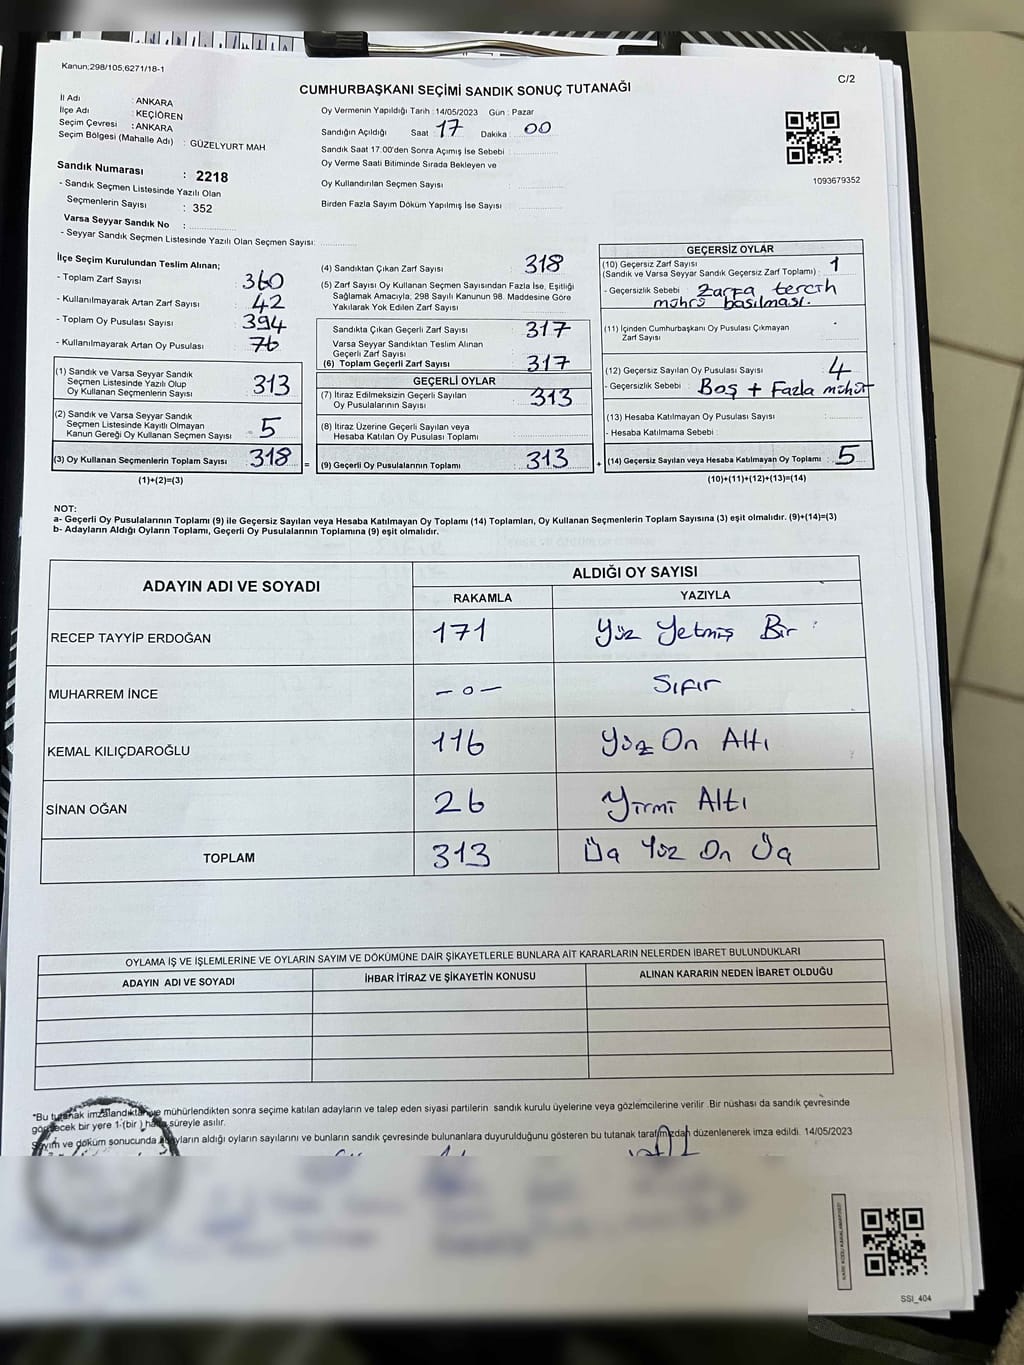 Kanun;298/105,6271/18-1
C/2
CUMHURBAŞKANI SEÇİMİ SANDIK SONUÇ TUTANAĞI
İl Adı : ANKARA
İlçe Adı : KEÇİÖREN
Seçim Çevresi : ANKARA
Seçim Bölgesi (Mahalle Adı) : GÜZELYURT MAH
Sandık Numarası : 2218
- Sandık Seçmen Listesinde Yazılı Olan
Seçmenlerin Sayısı : 352
Varsa Seyyar Sandık No :
- Seyyar Sandık Seçmen Listesinde Yazılı Olan Seçmen Sayısı:
Oy Vermenin Yapıldığı Tarih :14/05/2023 Gün : Pazar
Sandığın Açıldığı Saat 17 Dakika : 00
Sandık Saat 17.00'den Sonra Açımış İse Sebebi :
Oy Verme Saati Bitiminde Sırada Bekleyen ve
Oy Kullandırılan Seçmen Sayısı :
Birden Fazla Sayım Döküm Yapılmış İse Sayısı :
1093679352
İlçe Seçim Kurulundan Teslim Alınan;
- Toplam Zarf Sayısı : 360
- Kullanılmayarak Artan Zarf Sayısı : 42
- Toplam Oy Pusulası Sayısı : 394
- Kullanılmayarak Artan Oy Pusulası : 76
(1) Sandık ve Varsa Seyyar Sandık
Seçmen Listesinde Yazılı Olup
Oy Kullanan Seçmenlerin Sayısı : 313
(2) Sandık ve Varsa Seyyar Sandık
Seçmen Listesinde Kayıtlı Olmayan
Kanun Gereği Oy Kullanan Seçmen Sayısı : 5
(3) Oy Kullanan Seçmenlerin Toplam Sayısı : 318
(1)+(2)=(3)
(4) Sandıktan Çıkan Zarf Sayısı : 318
(5) Zarf Sayısı Oy Kullanan Seçmen Sayısından Fazla İse, Eşitliği
Sağlamak Amacıyla, 298 Sayılı Kanunun 98. Maddesine Göre
Yakılarak Yok Edilen Zarf Sayısı :
Sandıkta Çıkan Geçerli Zarf Sayısı : 317
Varsa Seyyar Sandıktan Teslim Alınan
Geçerli Zarf Sayısı :
(6) Toplam Geçerli Zarf Sayısı : 317
GEÇERLİ OYLAR
(7) İtiraz Edilmeksizin Geçerli Sayılan
Oy Pusulalarının Sayısı : 313
(8) İtiraz Üzerine Geçerli Sayılan veya
Hesaba Katılan Oy Pusulası Toplamı :
= (9) Geçerli Oy Pusulalarının Toplamı : 313
GEÇERSİZ OYLAR
(10) Geçersiz Zarf Sayısı
(Sandık ve Varsa Seyyar Sandık Geçersiz Zarf Toplamı) : 1
- Geçersizlik Sebebi : Zarfa tercih
mührü basılması.
(11) İçinden Cumhurbaşkanı Oy Pusulası Çıkmayan
Zarf Sayısı :
(12) Geçersiz Sayılan Oy Pusulası Sayısı : 4
- Geçersizlik Sebebi : Boş + Fazla mühür
(13) Hesaba Katılmayan Oy Pusulası Sayısı :
- Hesaba Katılmama Sebebi :
+ (14) Geçersiz Sayılan veya Hesaba Katılmayan Oy Toplamı : 5
(10)+(11)+(12)+(13)=(14)
NOT:
a- Geçerli Oy Pusulalarının Toplamı (9) ile Geçersiz Sayılan veya Hesaba Katılmayan Oy Toplamı (14) Toplamları, Oy Kullanan Seçmenlerin Toplam Sayısına (3) eşit olmalıdır. (9)+(14)=(3)
b- Adayların Aldığı Oyların Toplamı, Geçerli Oy Pusulalarının Toplamına (9) eşit olmalıdır.
ADAYIN ADI VE SOYADI
ALDIĞI OY SAYISI
RAKAMLA YAZIYLA
RECEP TAYYİP ERDOĞAN 171 Yüz Yetmiş Bir
MUHARREM İNCE -0- Sıfır
KEMAL KILIÇDAROĞLU 116 Yüz On Altı
SİNAN OĞAN 26 Yirmi Altı
TOPLAM 313 Üç Yüz On Üç
OYLAMA İŞ VE İŞLEMLERİNE VE OYLARIN SAYIM VE DÖKÜMÜNE DAİR ŞİKAYETLERLE BUNLARA AİT KARARLARIN NELERDEN İBARET BULUNDUKLARI
ADAYIN ADI VE SOYADI İHBAR İTİRAZ VE ŞİKAYETİN KONUSU ALINAN KARARIN NEDEN İBARET OLDUĞU
*Bu tutanak imzalandıktan ve mühürlendikten sonra seçime katılan adayların ve talep eden siyasi partilerin sandık kurulu üyelerine veya gözlemcilerine verilir .Bir nüshası da sandık çevresinde
görülecek bir yere 1 (bir ) hafta süreyle asılır.
Sayım ve döküm sonucunda adayların aldığı oyların sayılarını ve bunların sandık çevresinde bulunanlara duyurulduğunu gösteren bu tutanak tarafımızdan düzenlenerek imza edildi. 14/05/2023
SSI_404